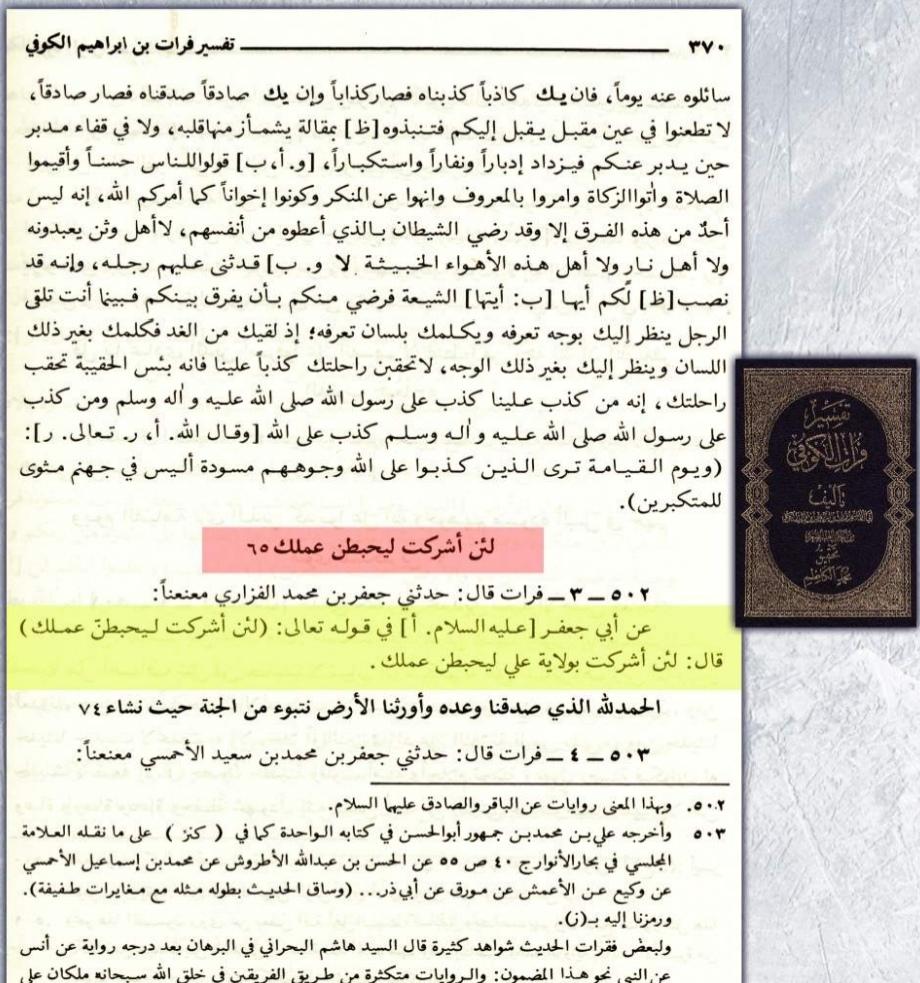 ٣٧٠ تفسير فرات بن ابراهيم الكوفي
سائلوه عنه يوماً، فان يك كاذباً كذبناه فصار كذاباً وإن يك صادقاً صدقناه فصار صادقاً،
لا تطعنوا في عين مقبل يقبل إليكم فتنبذوه [ظ] بمقالة يشمأز منها قلبه، ولا في قفاء مدبر
حين يدبر عنكم فيزداد إدباراً ونفاراً واستكباراً، [و. أ، ب] قولوا للناس حسناً وأقيموا
الصلاة وآتوا الزكاة وامروا بالمعروف وانهوا عن المنكر وكونوا إخواناً كما أمركم الله، إنه ليس
أحدٌ من هذه الفرق إلا وقد رضي الشيطان بالذي أعطوه من أنفسهم، لا أهل وثن يعبدونه
ولا أهل نار ولا أهل هذه الأهواء الخبيثة لا و. ب] قد ثنى عليهم رجله، وإنه قد
نصب [ظ] لكم أيها [ب: أيتها] الشيعة فرضي منكم بأن يفرق بينكم فبينما أنت تلقى
الرجل ينظر إليك بوجه تعرفه ويكلمك بلسان تعرفه؛ إذ لقيك من الغد فكلمك بغير ذلك
اللسان وينظر إليك بغير ذلك الوجه، لا تحقبن راحلتك كذباً علينا فانه بئس الحقيبة تحقب
راحلتك، إنه من كذب علينا كذب على رسول الله صلى الله عليه وآله وسلم ومن كذب
على رسول الله صلى الله عليه وآله وسلم كذب على الله [وقال الله. أ، ر. تعالى. ر]:
(ويوم القيامة ترى الذين كذبوا على الله وجوههم مسودة أليس في جهنم مثوى
للمتكبرين).
لئن أشركت ليحبطن عملك ٦٥
٥٠٢ ــ ٣ ــ فرات قال: حدثني جعفر بن محمد الفزاري معنعناً:
عن أبي جعفر [عليه السلام. أ] في قوله تعالى: (لئن أشركت ليحبطنّ عملك)
قال: لئن أشركت بولاية علي ليحبطن عملك.
الحمد لله الذي صدقنا وعده وأورثنا الأرض نتبوء من الجنة حيث نشاء ٧٤
٥٠٣ ــ ٤ ــ فرات قال: حدثني جعفر بن محمد بن سعيد الأحمسي معنعناً:
٥٠٢. وبهذا المعنى روايات عن الباقر والصادق عليهما السلام.
٥٠٣ وأخرجه علي بن محمد بن جمهور أبو الحسن في كتابه الواحدة كما في (كنز) على ما نقله العلامة
المجلسي في بحار الأنوار ج ٤٠ ص ٥٥ عن الحسن بن عبدالله الأطروش عن محمد بن إسماعيل الأحمسي
عن وكيع عن الأعمش عن مورق عن أبي ذر... (وساق الحديث بطوله مثله مع مغايرات طفيفة).
ورمزنا إليه بـ(ز).
ولبعض فقرات الحديث شواهد كثيرة قال السيد هاشم البحراني في البرهان بعد درجه رواية عن أنس
عن النبي نحو هذا المضمون: والروايات متكثرة من طريق الفريقين في خلق الله سبحانه ملكان على
تفسير
فرات الكوفي
تأليف
تحقيق
محمد الكاظم